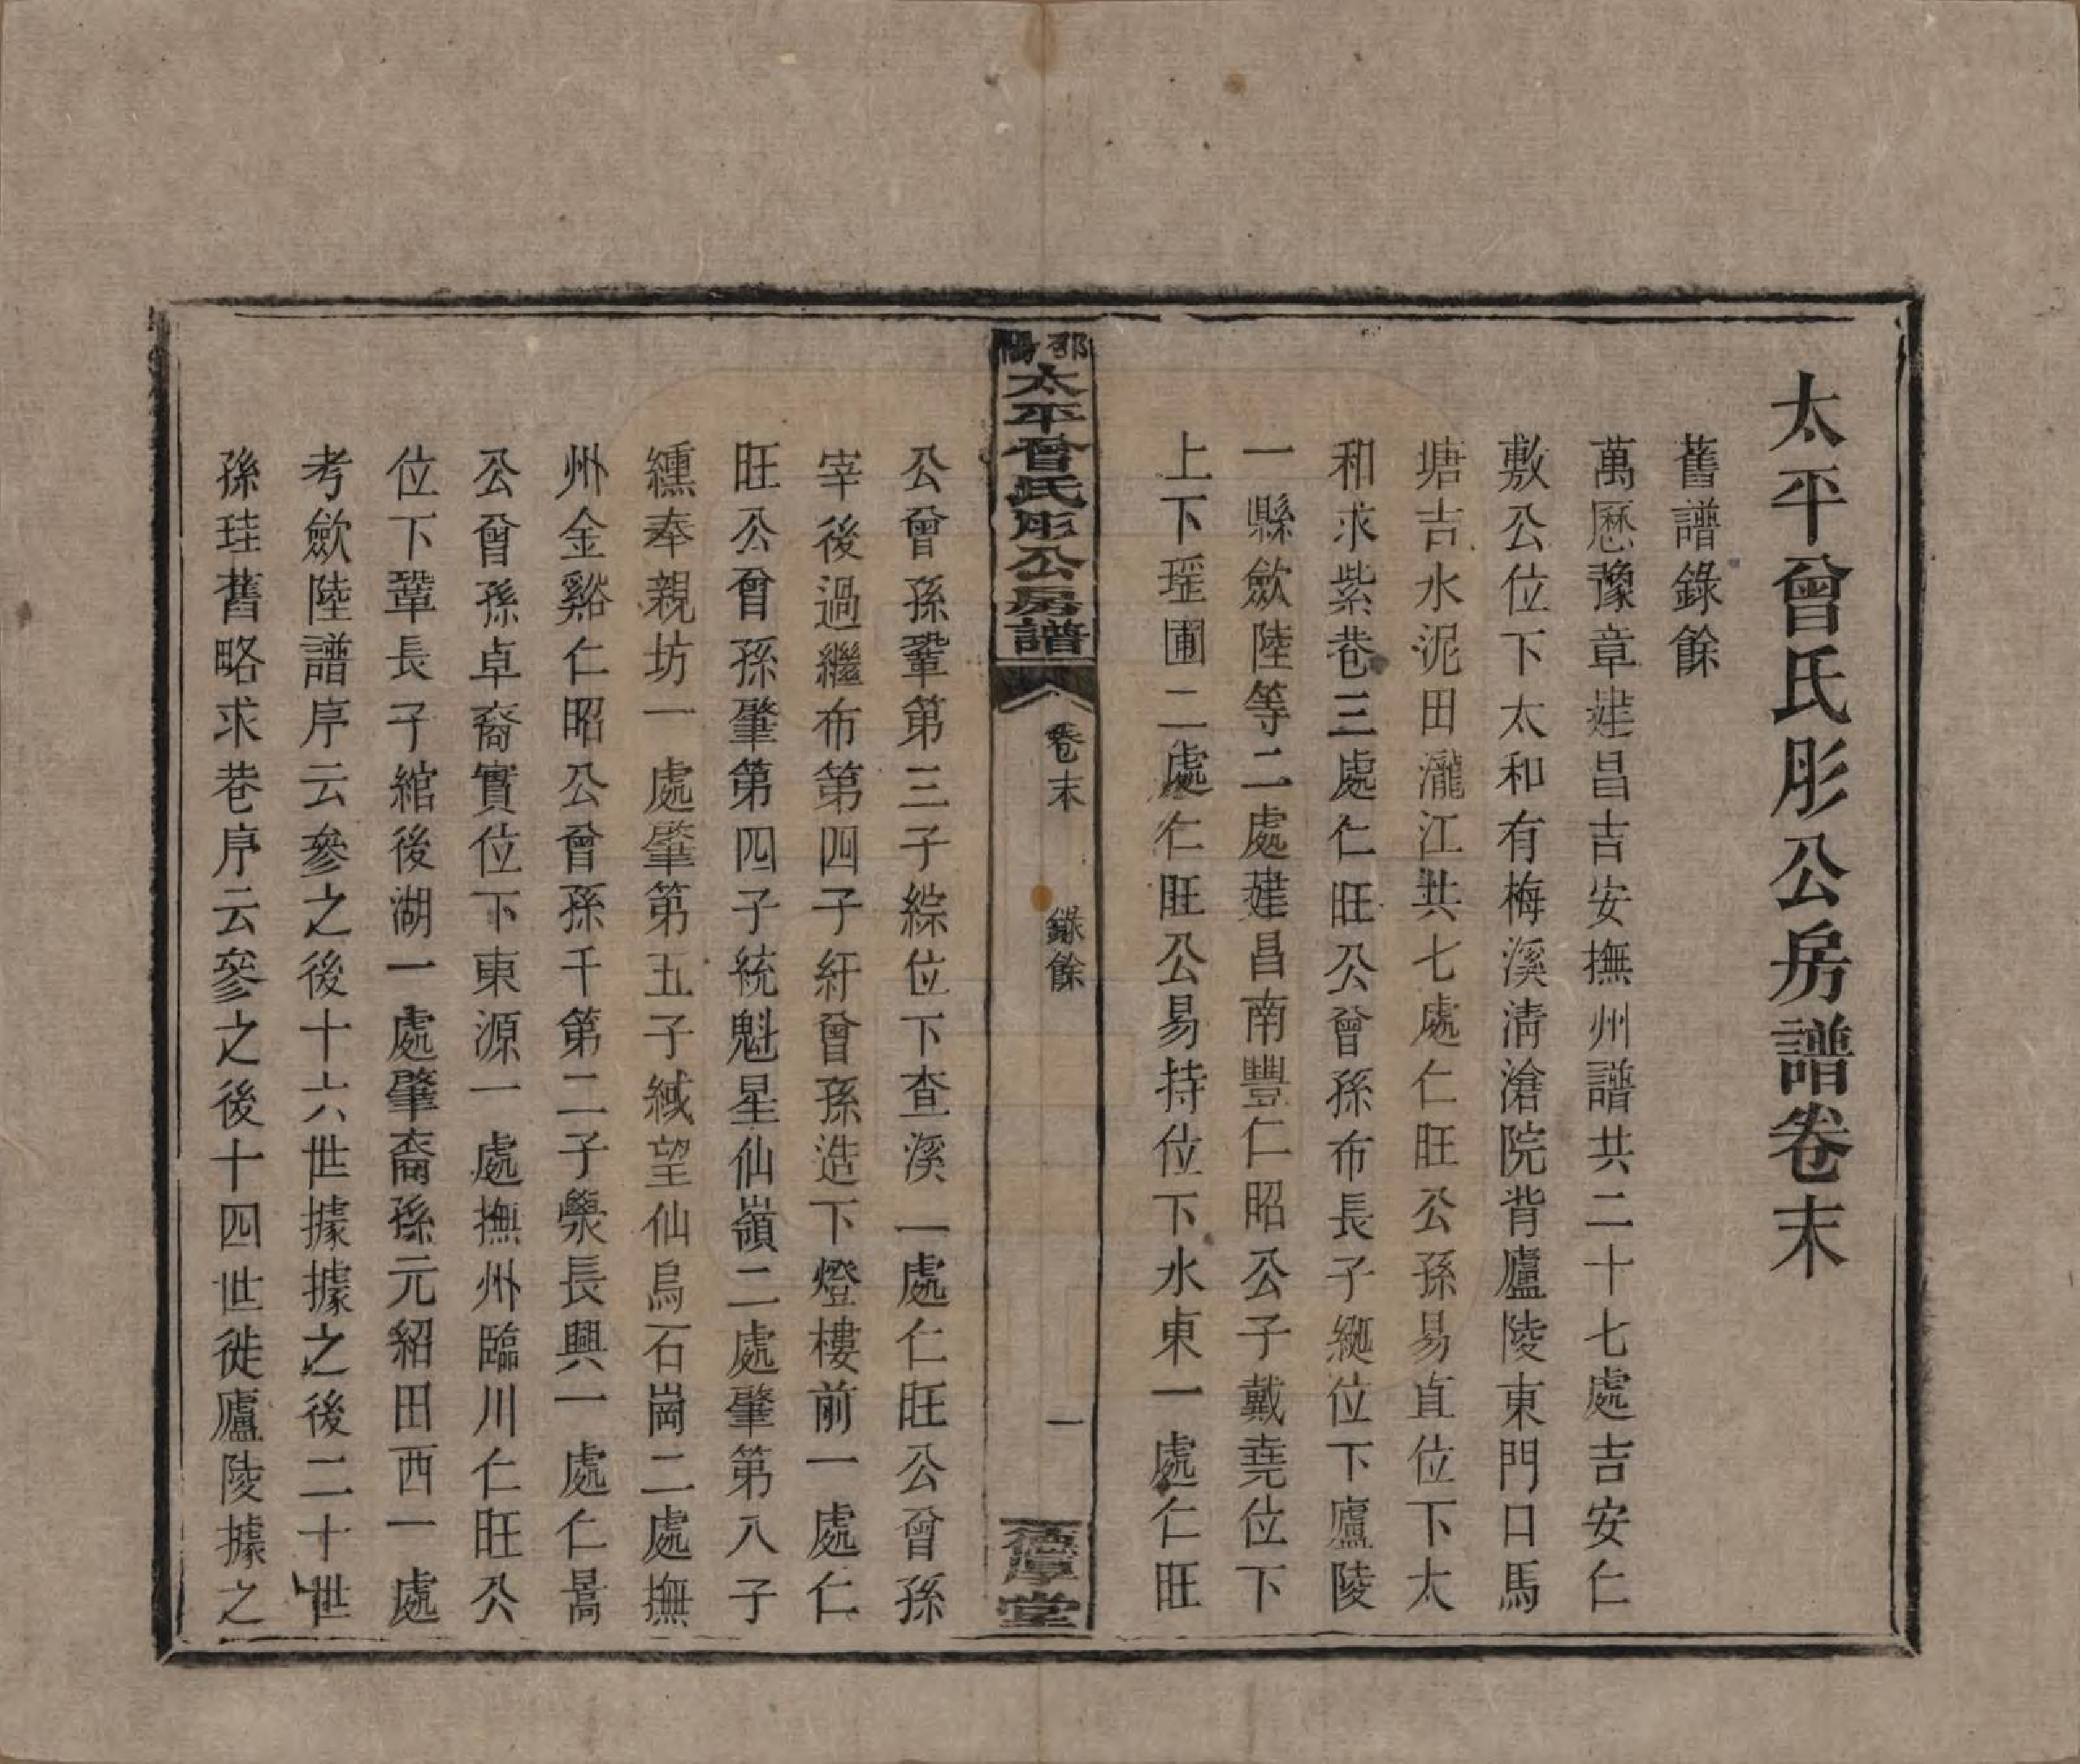 太平曾氏彤公房譜卷末
舊譜錄餘
萬厯豫章建昌吉安撫州譜共二十七處吉安仁
敷公位下太和有梅溪淸滄院背廬陵東門口馬
塘吉水泥田瀧江共七處仁旺公孫易直位下太
和求紫巷三處仁旺公曾孫布長子綖位下廬陵
一縣歛陸等二處建昌南豐仁昭公子戴堯位下
上下瑶圃二處仁旺公易持位下水東一處仁旺
邵陽太平曾氏彤公房譜
卷末
錄餘
一
德厚堂
公曾孫鞏第三子綜位下查溪一處仁旺公曾孫
宰後過繼布第四子紆曾孫造下燈樓前一處仁
旺公曾孫肇第四子統魁星仙嶺二處肇第八子
纁奉親坊一處肇第五子緎望仙烏石崗二處撫
州金谿仁昭公曾孫千第二子㶑長興一處仁暠
公曾孫卓裔實位下東源一處撫州臨川仁旺公
位下鞏長子綰後湖一處肇裔孫元紹田西一處
考歛陸譜序云參之後十六世據據之後二十世
孫珪舊略求巷序云參之後十四世徙廬陵據之